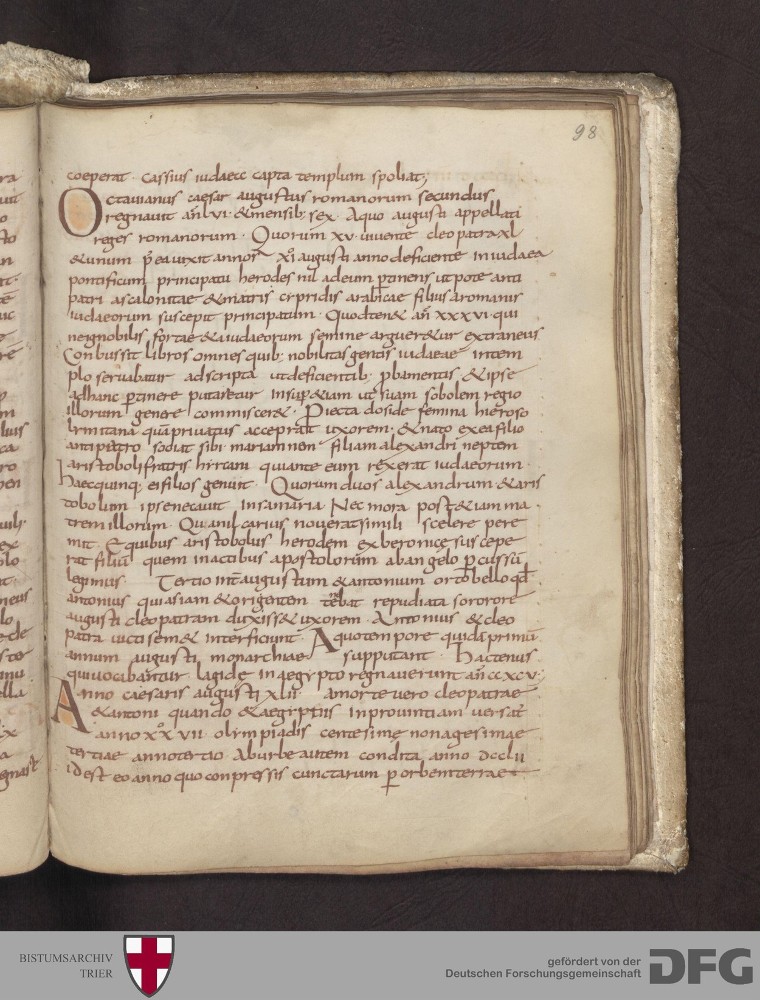 98
coeperat· Cassius iudaecc capta templum spoliat;
Octavianus caesar augustus romanorum secundus
regnavit añ lvi· &mensib; sex· Aquo augusti appellati
reges romanorum· Quorum xv· vivente cleopatra xl
&unum p̄ ea vixit annos xi augusti anno deficiente in iudaea
pontificum principatu herodes nil adeum ꝑtinens utpote anti
patri ascalonitae &matris cypridis arabicae filius aromanis
iudaeorum suscepit principatum· Quodten& añ xxxvi· qui
neignobilis fort&eiudaeorum semine arguer&ur extraneus
Conbussit libros omnes quib; nobilitas gentis iudaeae intem
plo servabatur adscripta utdeficientib; ꝓbamentis &ipse
adhanc ꝑtinere putaretur Insup&iam utsuam sobolem regio
illorum genere commiscer&· Piecta doside femina hieroso
lymitana quā privatus acceperat uxorem· &nato exeafilio
antipatro sociat sibi mariamnen filiam alexandri neptem
aristoboli fratris hyrcani quiante eum rexerat iudaeorum·
haecquinq; ei filios genuit· Quorum duos alexandrum &aris
tobolum ipse necavit Insamaria Nec mora post&iam ma
trem illorum· Qua nil carius noverat simili scelere pere
mit· Equibus aristobolus herodem ex beronice suscepe
rat filiū quem inactibus apostolorum abangelo ꝑcussū
legimus Tertio int̄ augustum &antonium orto bello qđ
antonius quiasiam &origentem tebat repudiata sororore
augusti cleopatram duxiss& uxorem· Antonius &cleo
patra victi semet interficiunt· Aquo tempore quidā primū
annum augusti monarchiae supputant· Hactenus
quivocibantur lagide inaegypto regnaverunt añ ccxcv;
Anno caesaris augusti xlii amorte vero cleopatrae
&antoni quando &aegyptus inprovintiam versa ē
anno xxvii· olympiadis centesime nonagesimae
tertiae anno tertio Aburbe autem condita anno dcclii
idest eo anno quo conpressis cunctarum ꝑ orbem terrae
BISTUMSARCHIV
TRIER
gefördert von der
Deutschen Forschungsgemeinschaft
DFG